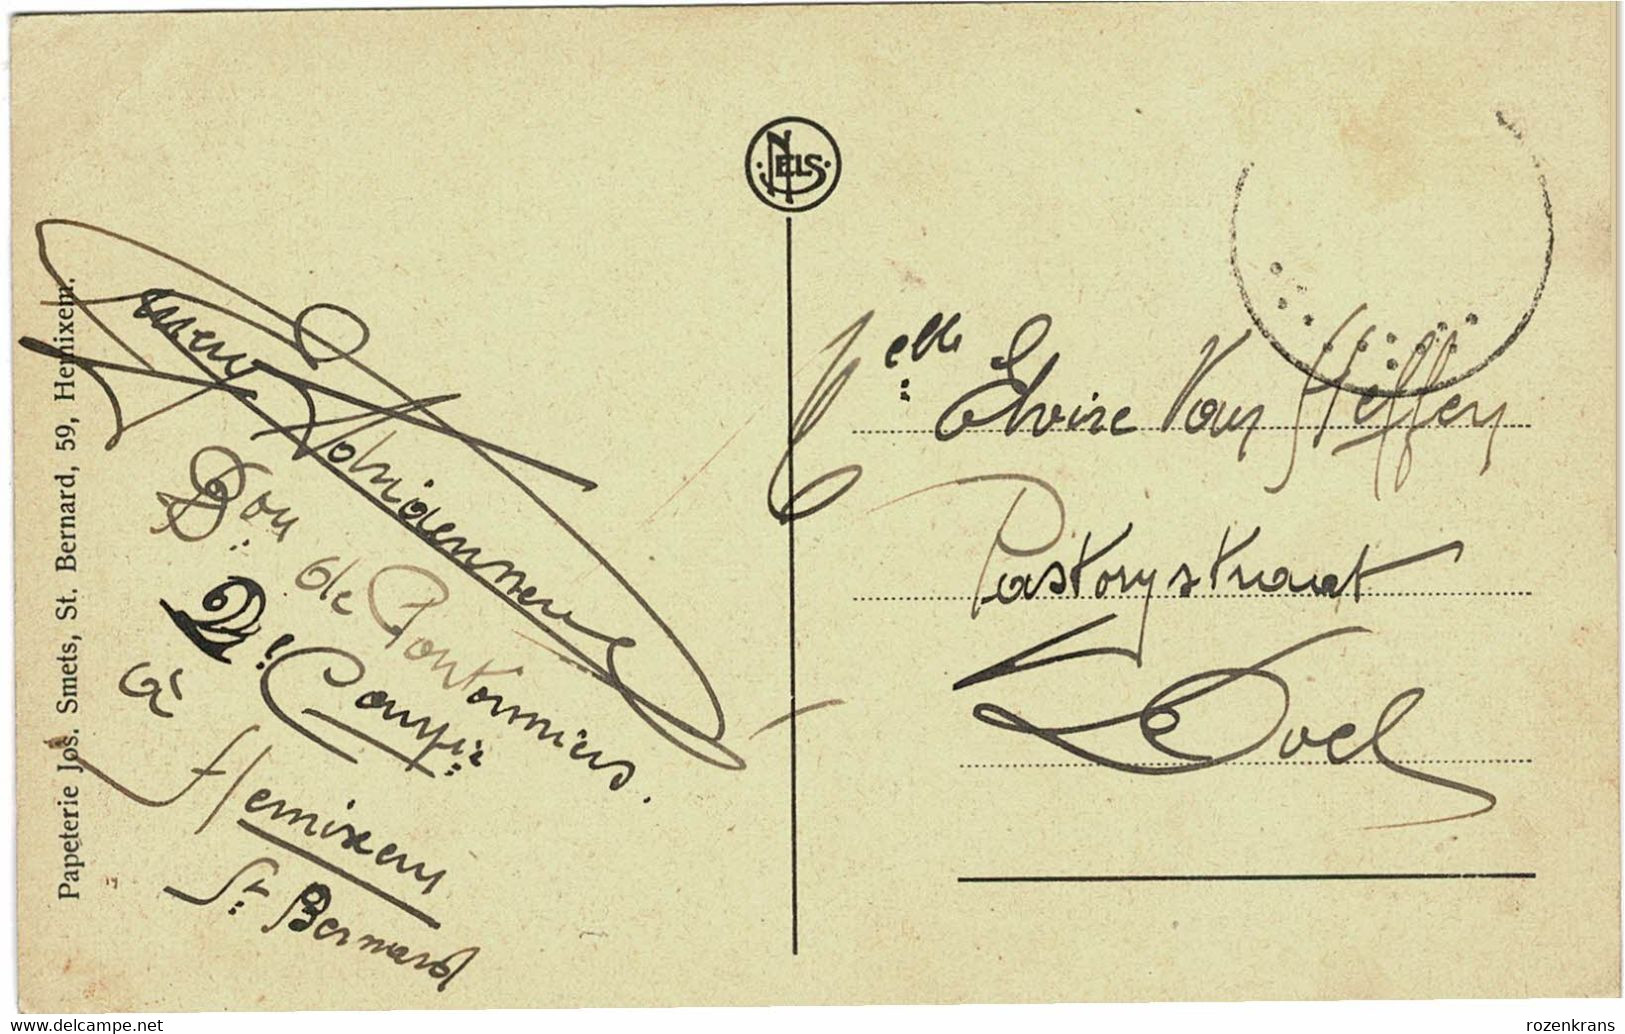 Papeterie Jos. Smets, St. Bernard, 59, Hemixem.
NELS
Adriaenssens
Bon de Pontonniers.
2e Compie
à
Hemixem
St Bernard
elle Elvire Van Steffen
Pastorystraat
Doel
www.delcampe.net
rozenkrans